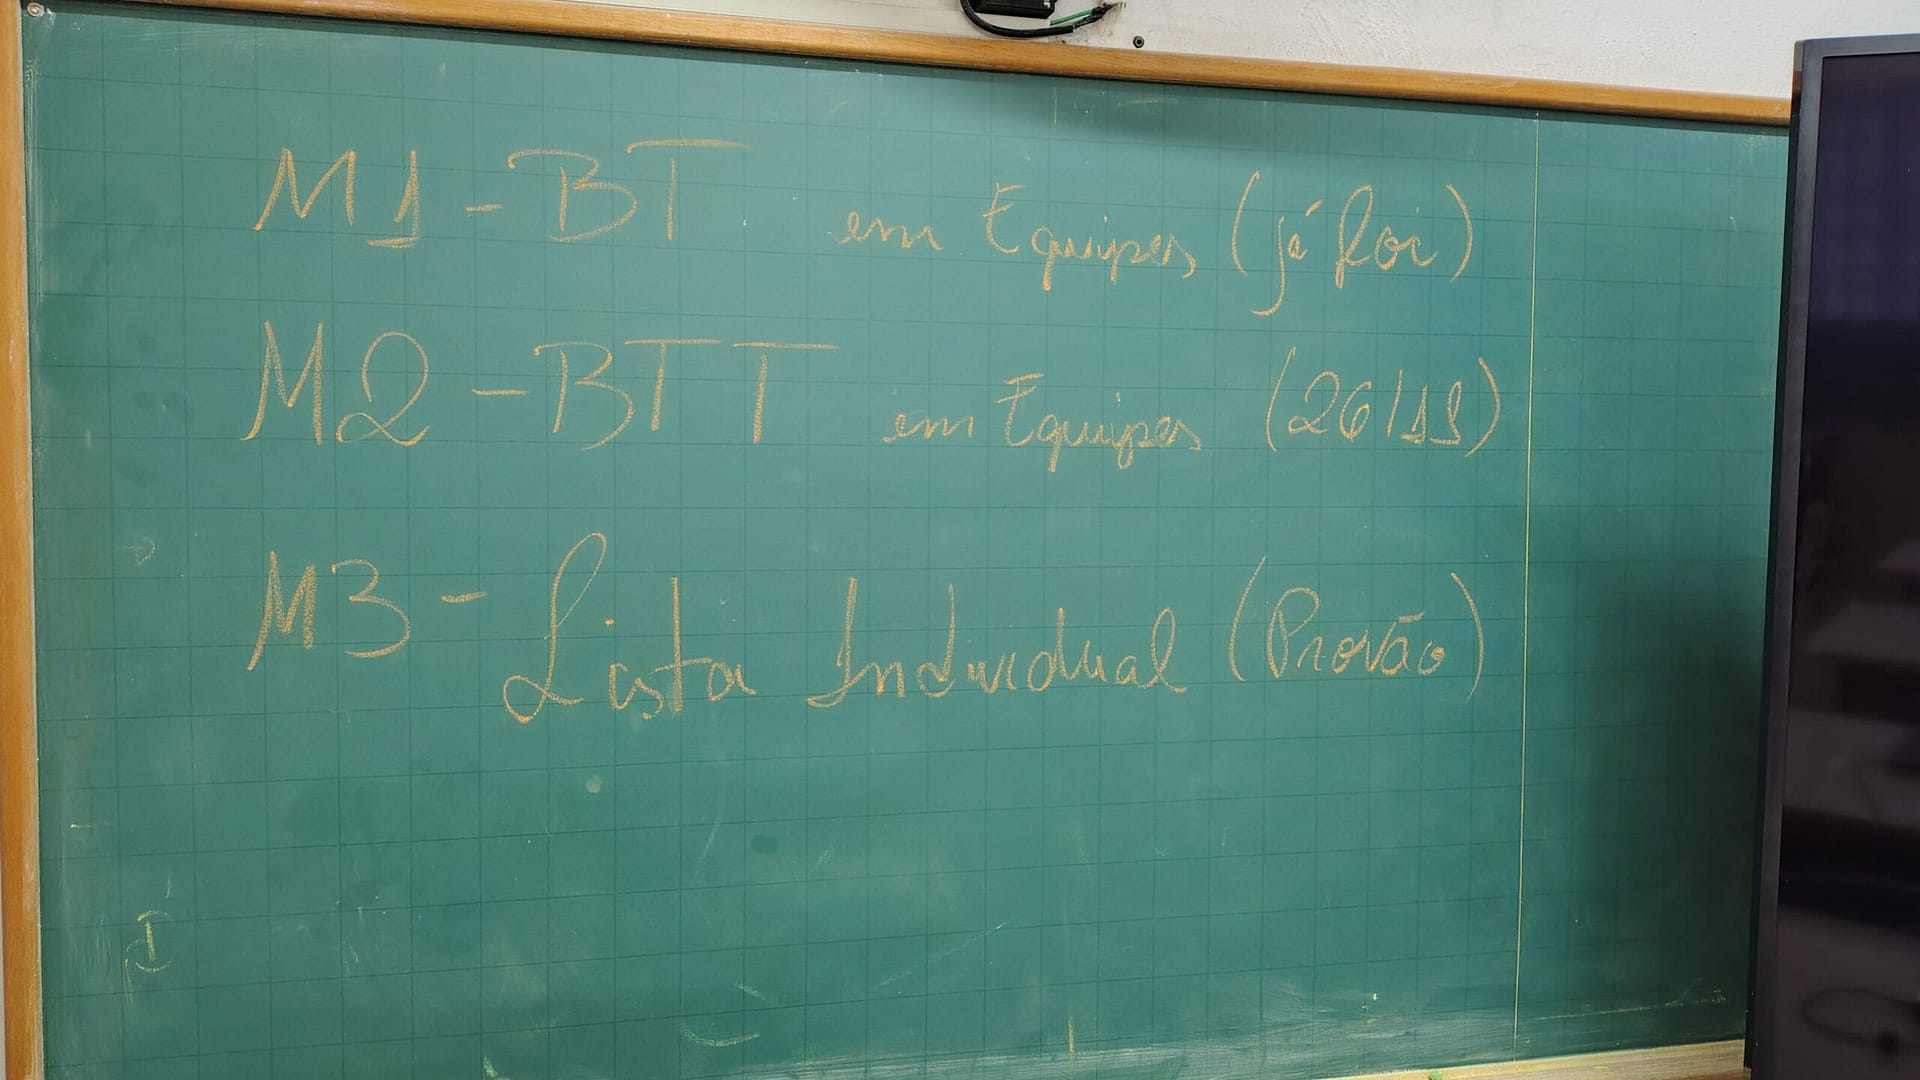 M1 - BT em Equipes (já foi)
M2 - BTT em Equipes (26/11)
M3 - Lista Individual (Provão)